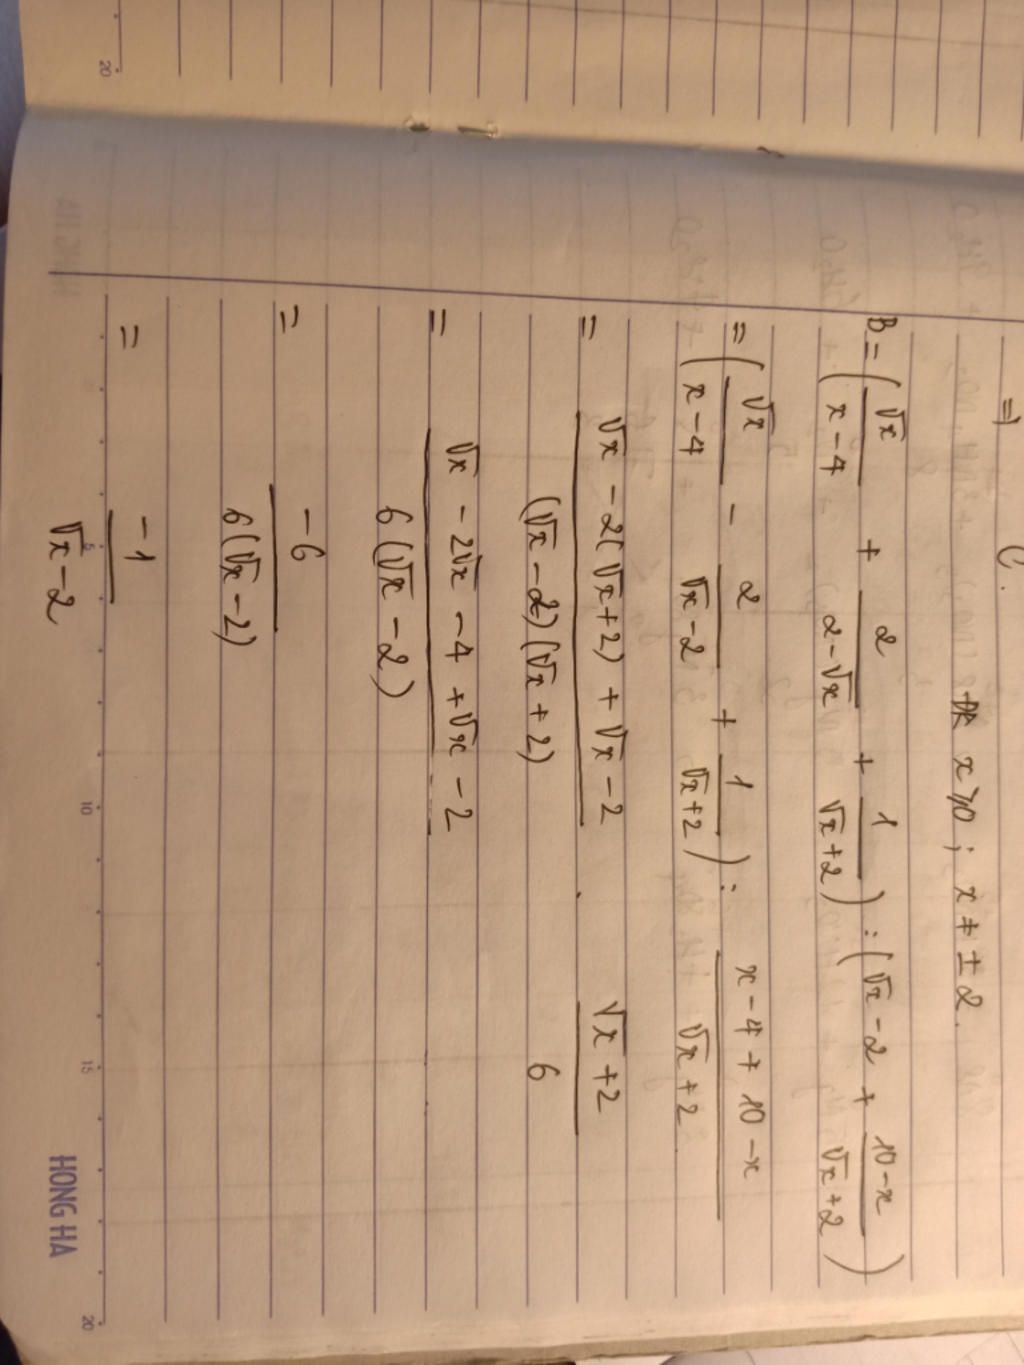 =) C.
ĐK x ≥ 0 ; x ≠ ± 2.
B = ( √x / (x - 4) + 2 / (2 - √x) + 1 / (√x + 2) ) : ( √x - 2 + (10 - x) / (√x + 2) )
= ( √x / (x - 4) - 2 / (√x - 2) + 1 / (√x + 2) ) : (x - 4 + 10 - x) / (√x + 2)
= (√x - 2(√x + 2) + √x - 2) / ((√x - 2)(√x + 2)) . (√x + 2) / 6
= (√x - 2√x - 4 + √x - 2) / (6(√x - 2))
= -6 / (6(√x - 2))
= -1 / (√x - 2)
5 10 15 20
HONG HA
20